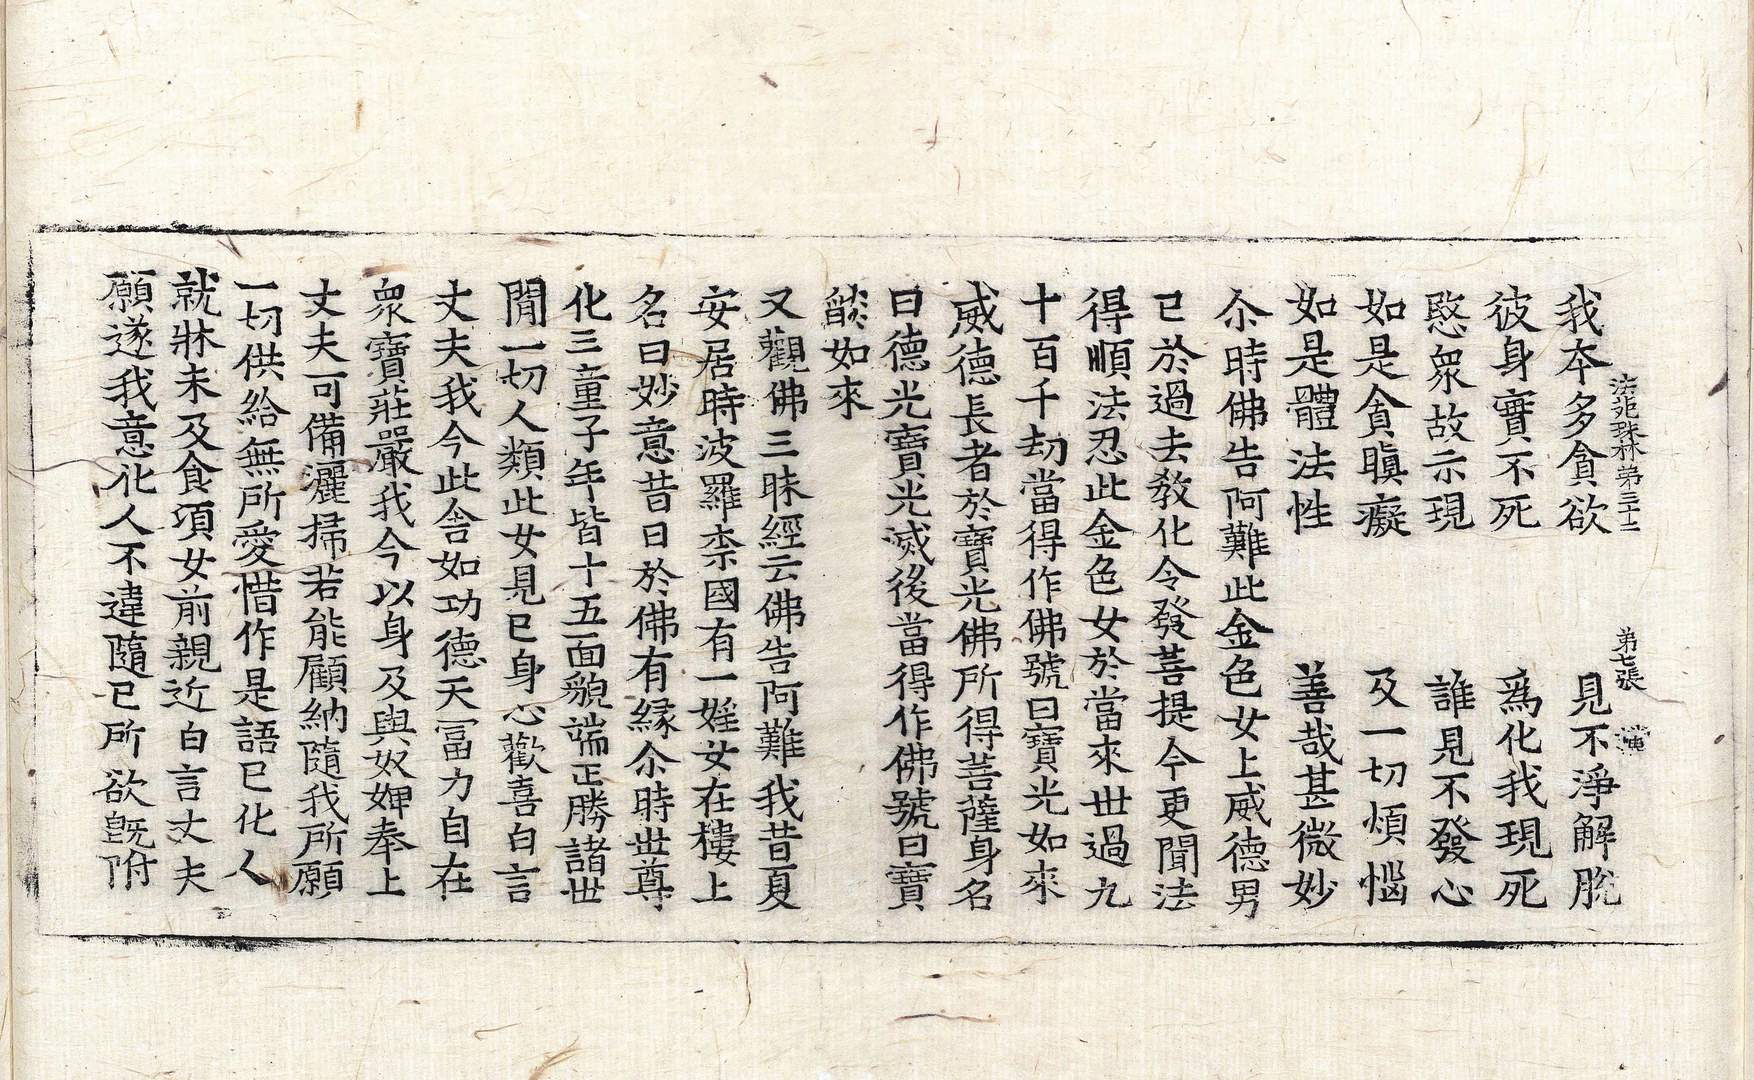 法苑珠林第三十三　第七張
我本多貪欲　見不淨解脫
彼身實不死　爲化我現死
愍衆故示現　誰見不發心
如是貪瞋癡　及一切煩惱
如是體法性　善哉甚微妙
尒時佛告阿難此金色女上威德男
已於過去教化令發菩提今更聞法
得順法忍此金色女於當來世過九
十百千劫當得作佛號曰寶光如來
威德長者於寶光佛所得菩薩身名
曰德光寶光滅後當得作佛號曰寶
㷿如來
又觀佛三昧經云佛告阿難我昔夏
安居時波羅柰國有一婬女在樓上
名曰妙意昔日於佛有緣尒時世尊
化三童子年皆十五面貌端正勝諸世
閒一切人類此女見已身心歡喜白言
丈夫我今此舍如功德天冨力自在
衆寶莊嚴我今以身及與奴婢奉上
丈夫可備灑掃若能顧納隨我所願
一切供給無所愛惜作是語已化人
就牀未及食頃女前親近白言丈夫
願遂我意化人不違隨已所欲旣附